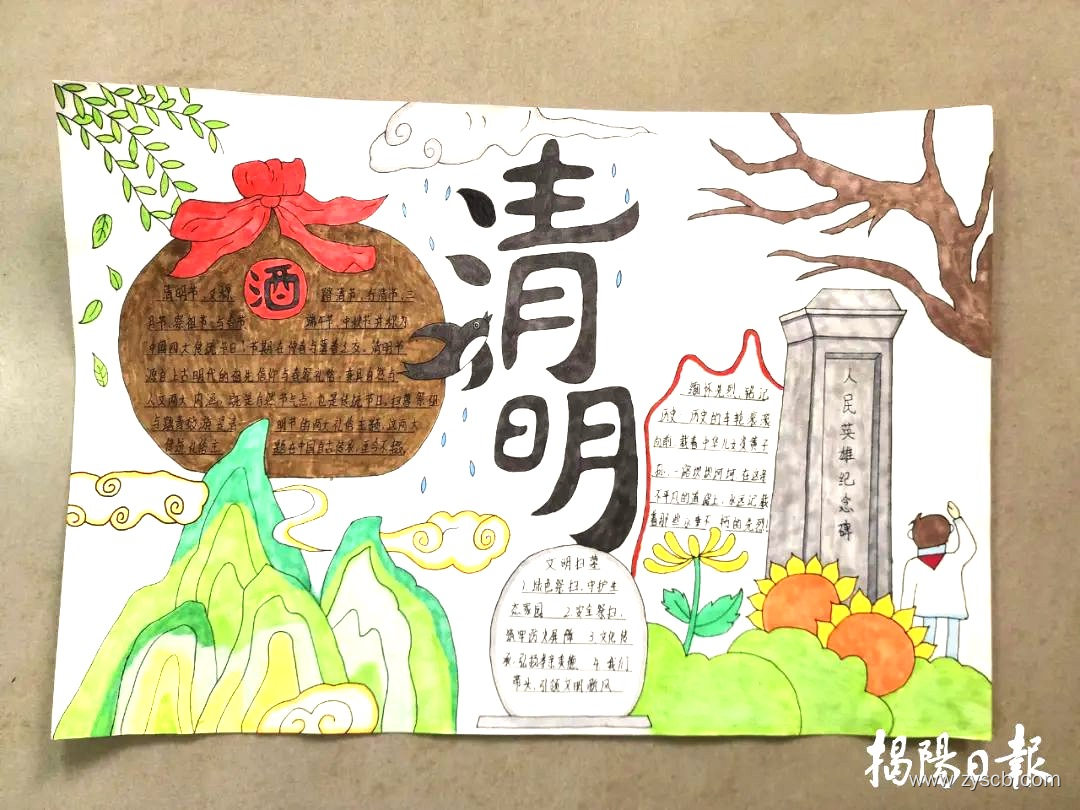 清明
酒
清明节,又称 踏青节、行清节、三
月节、祭祖节,与春节 端午节、中秋节并称为
中国四大传统节日。节期在仲春与暮春之交。清明节
源自上古时代的祖先信仰与春祭礼俗,兼具自然与
人文两大内涵,既是自然节气点,也是传统节日,扫墓祭祖
与踏青郊游是清 明节的两大礼俗主题,这两大
传统礼俗主 题在中国自古传承,至今不辍。
缅怀先烈,铭记
历史 历史的车轮滚滚
向前,载着中华儿女炎黄子
孙,一路坎坎坷坷 在这条
不平凡的道路上,永远记载
着那些永垂不 朽的先烈!
人民英雄纪念碑
文明扫墓
1.绿色祭扫,守护生
态家园 2.安全祭扫,
筑牢防火屏障 3.文化传
承,弘扬孝亲美德 4.我们
带头,引领文明新风
揭陽日報
www.zyscb.com